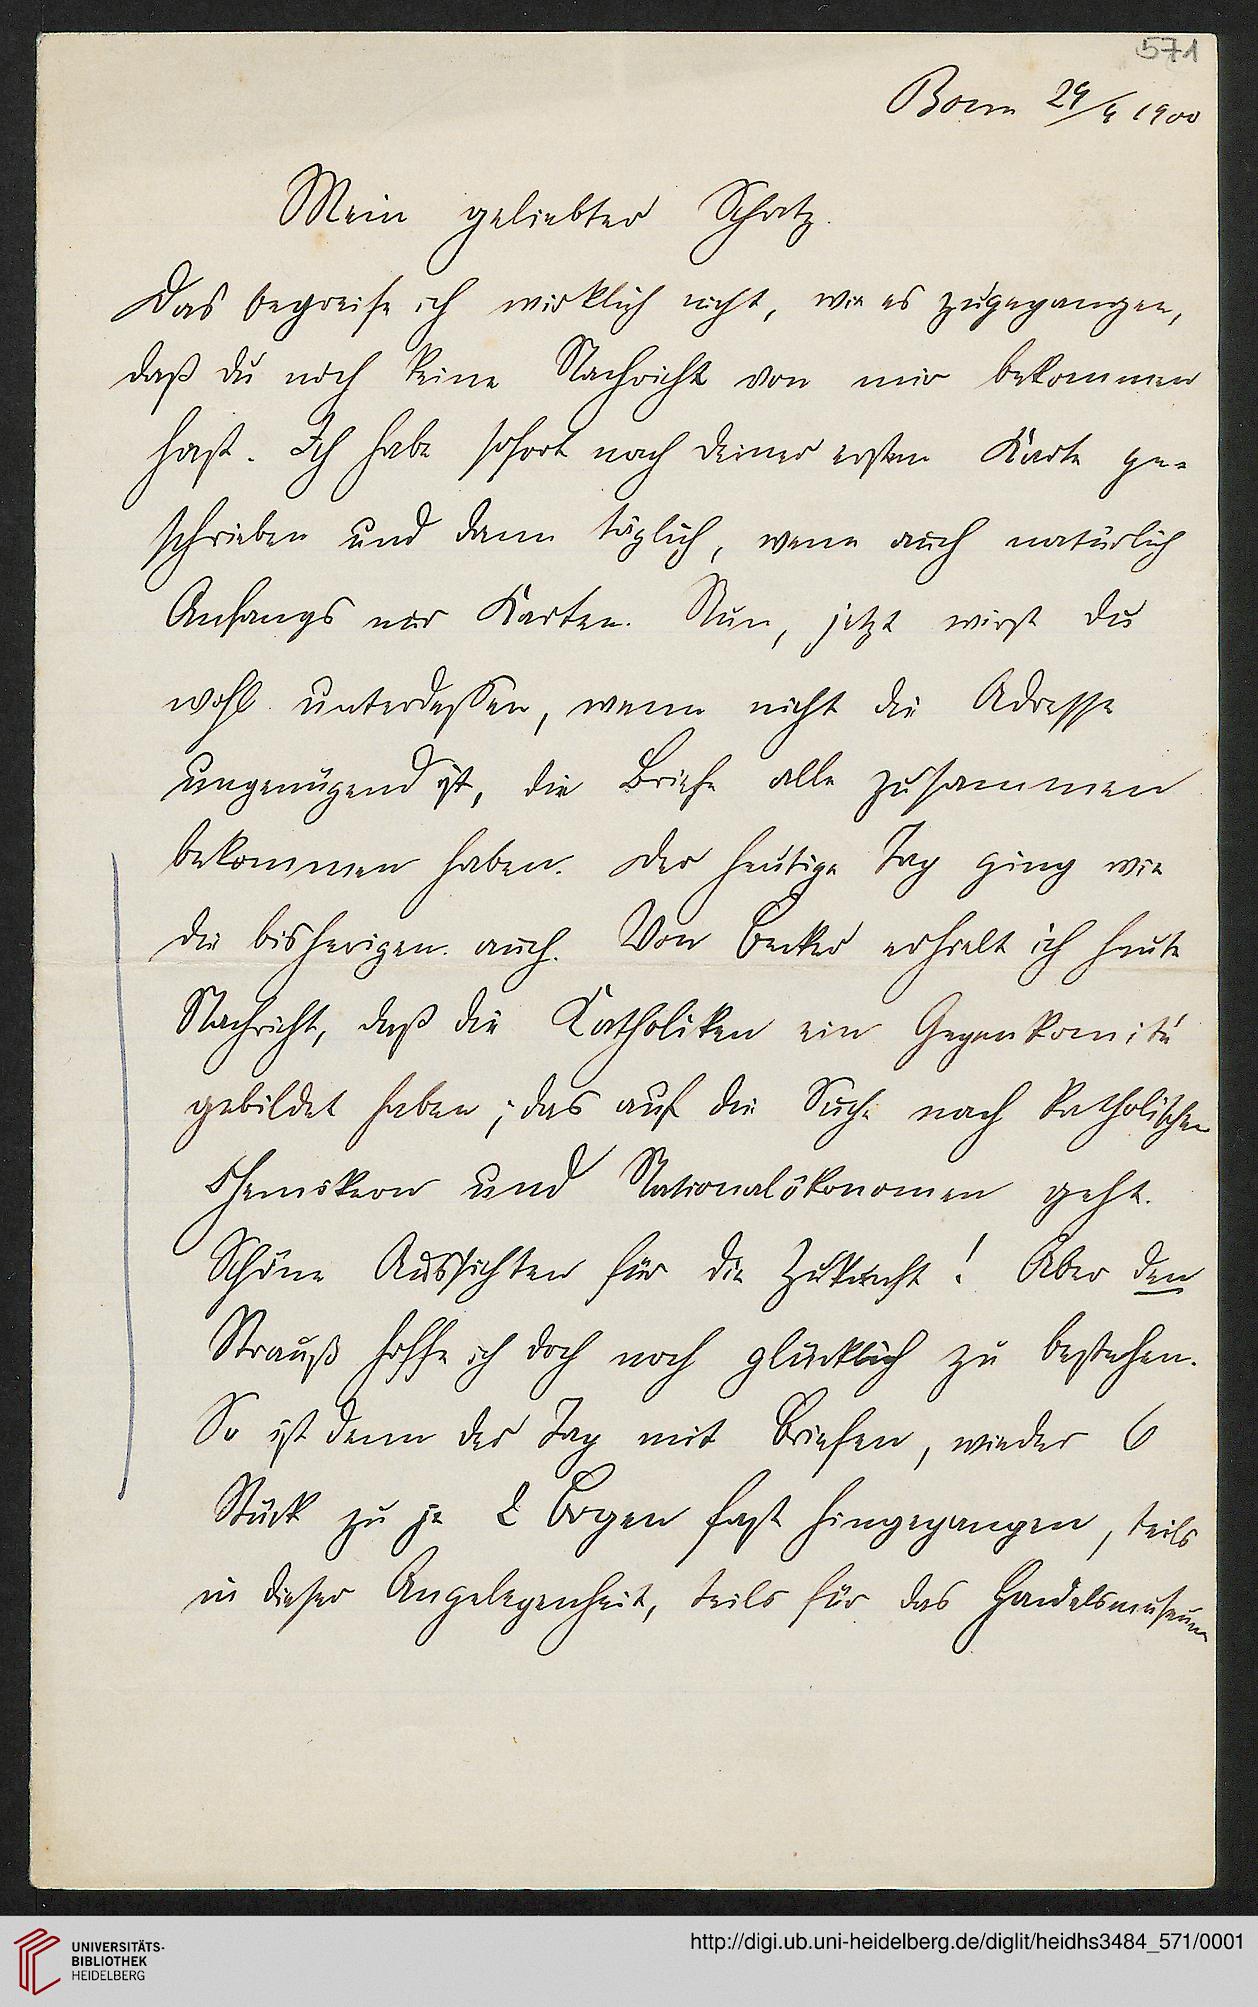 571
Bonn 29/4 1900
Mein geliebter Schatz.
Das begreife ich wirklich nicht, wie es zugegangen,
daß du noch keine Nachricht von mir bekommen
hast. Ich habe sofort nach deiner ersten Karte ge=
schrieben und dann täglich, wenn auch natürlich
Anfangs nur Karten. Nun, jetzt wirst du
wohl unterdessen, wenn nicht die Adresse
ungenügend ist, die Briefe alle zusammen
bekommen haben. Der heutige Tag ging wie
die bisherigen auch. Von Becker erhielt ich heute
Nachricht, daß die Katholiken ein Gegenkomité
gebildet haben, das auf die Suche nach katholischen
Chemikern und Nationalökonomen geht.
Schöne Aussichten für die Zukunft! Aber den
Strauß hoffe ich doch noch glücklich zu bestehen.
So ist denn der Tag mit Briefen, wieder 6
Stück zu je 2 Bogen fast hingegangen, teils
in dieser Angelegenheit, teils für das Handelsmuseum
UNIVERSITÄTS-
BIBLIOTHEK
HEIDELBERG
http://digi.ub.uni-heidelberg.de/diglit/heidhs3484_571/0001